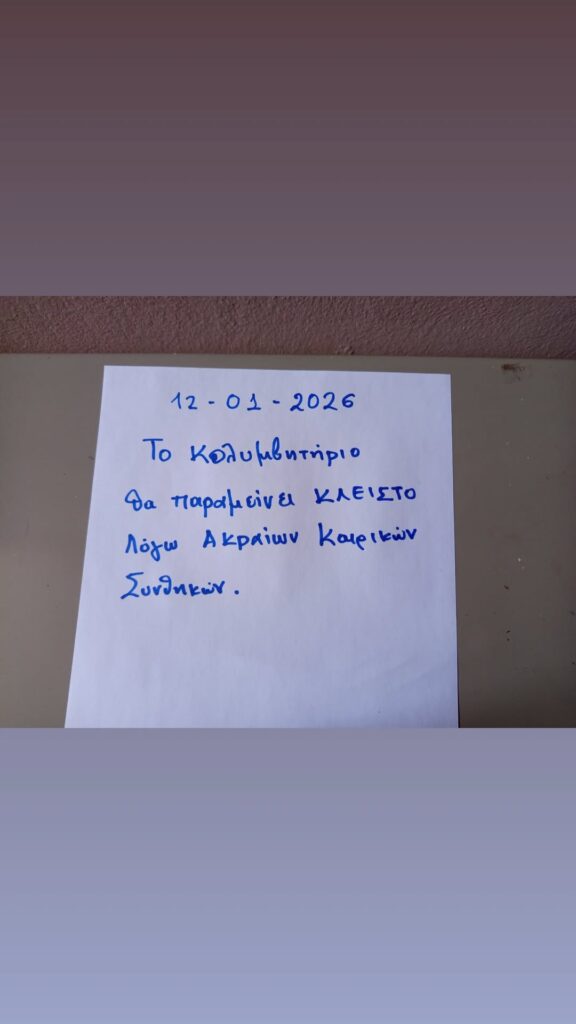 12-01-2026
Το Κολυμβητήριο
θα παραμείνει ΚΛΕΙΣΤΟ
Λόγω Ακραίων Καιρικών
Συνθηκών.